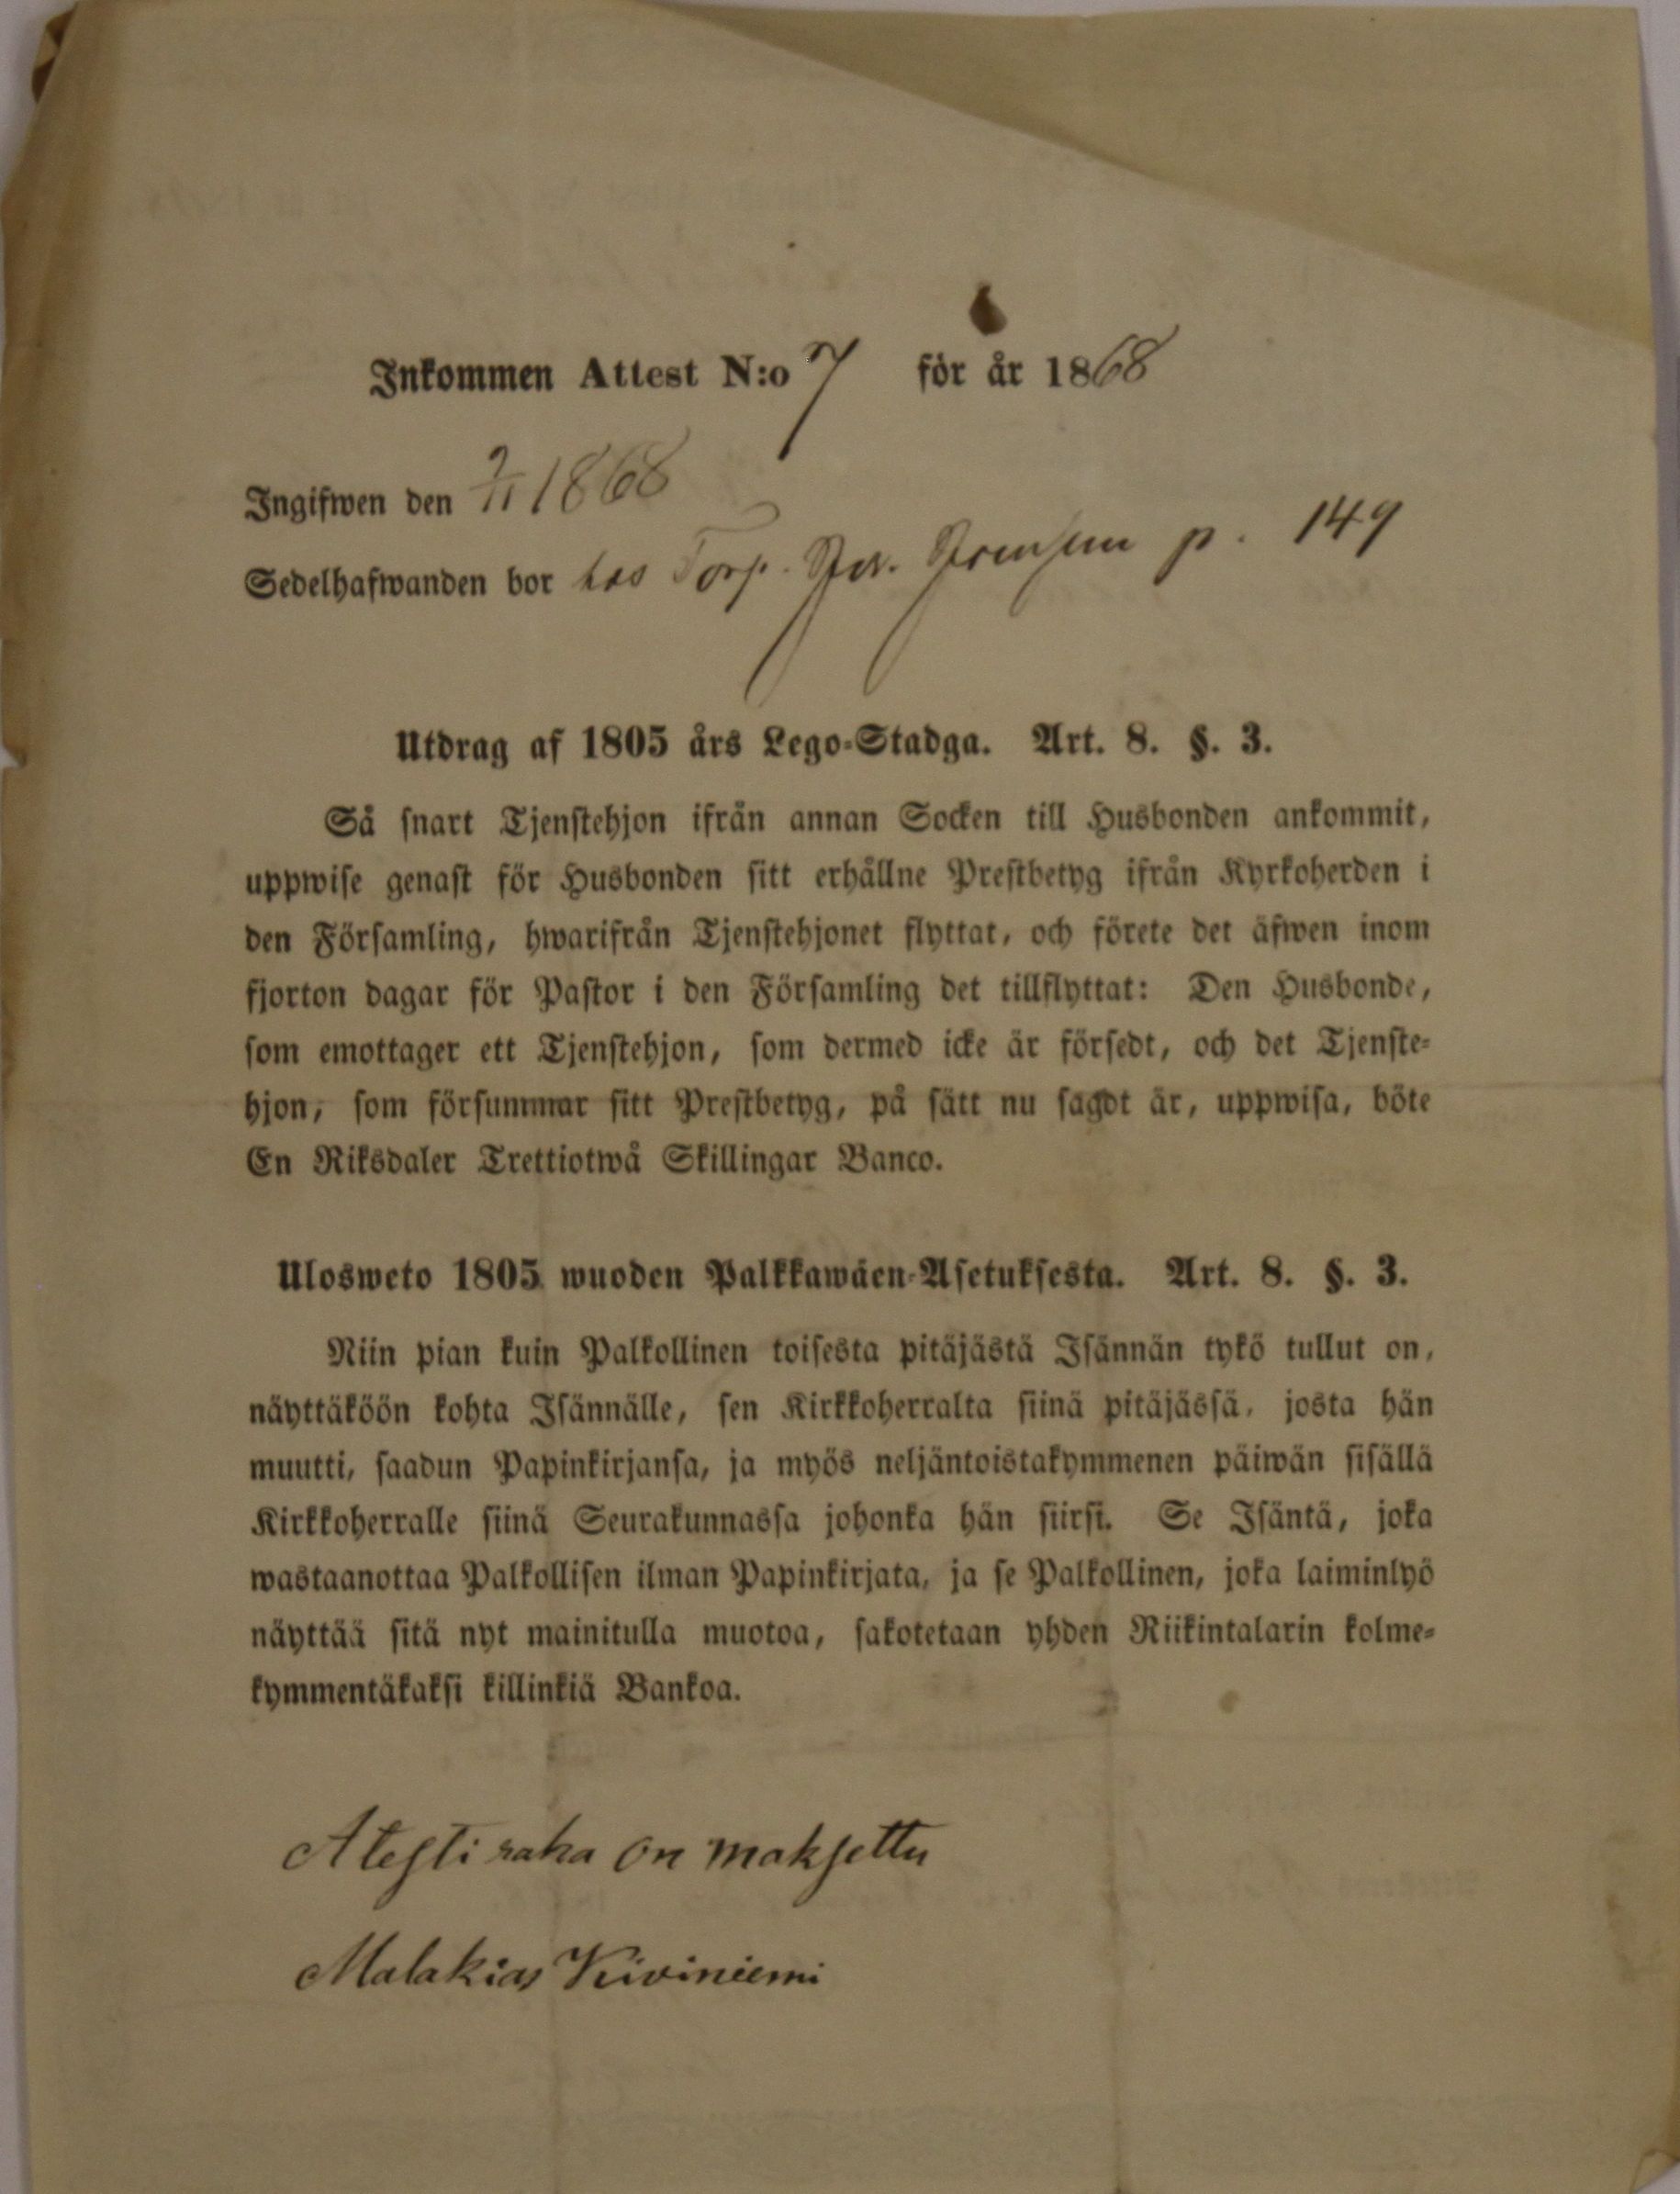 Inkommen Attest N:o 7 för år 1868
Ingifwen den 2/11 1868
Sedelhafwanden bor hos Torp. p. 149
Utdrag af 1805 års Lego-Stadga. Art. 8. §. 3.
Så snart Tjenstehjon ifrån annan Socken till Husbonden ankommit,
uppwise genast för Husbonden sitt erhållne Prestbetyg ifrån Kyrkoherden i
den Församling, hwarifrån Tjenstehjonet flyttat, och förete det äfwen inom
fjorton dagar för Pastor i den Församling det tillflyttat: Den Husbonde,
som emottager ett Tjenstehjon, som dermed icke är försedt, och det Tjenste-
hjon, som försummar sitt Prestbetyg, på sätt nu sagdt är, uppwisa, böte
En Riksdaler Trettiotwå Skillingar Banco.
Ulosweto 1805 wuoden Palkkawäen-Asetuksesta. Art. 8. §. 3.
Niin pian kuin Palkollinen toisesta pitäjästä Isännän tykö tullut on,
näyttäköön kohta Isännälle, sen Kirkkoherralta siinä pitäjässä, josta hän
muutti, saadun Papinkirjansa, ja myös neljäntoistakymmenen päiwän sisällä
Kirkkoherralle siinä Seurakunnassa johonka hän siirsi. Se Isäntä, joka
wastaanottaa Palkollisen ilman Papinkirjata, ja se Palkollinen, joka laiminlyö
näyttää sitä nyt mainitulla muotoa, sakotetaan yhden Riikintalarin kolme-
kymmentäkaksi killinkiä Bankoa.
Atesti raha on maksettu
Malakias Kiviniemi